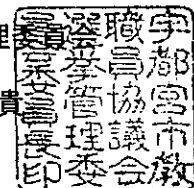 理委員
貴
宇都宮市教
職員協議会
選挙管理委
員会委員長印